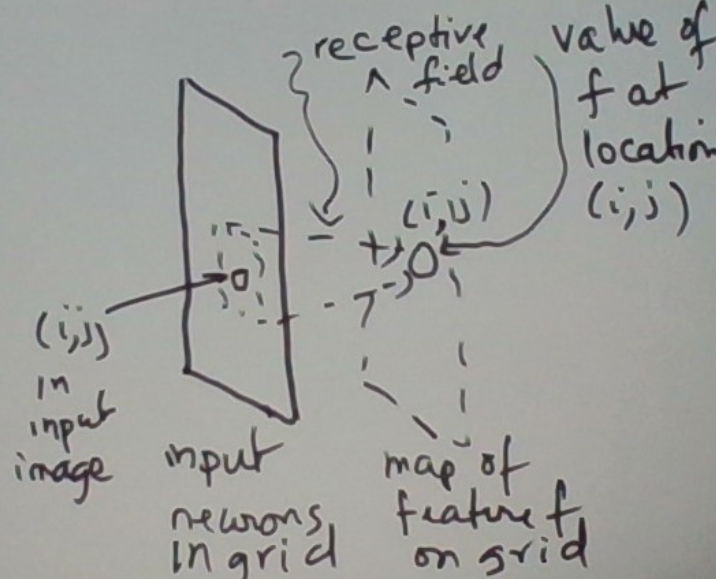 receptive
field
value of
f at
location
(i,j)
(i,j)
(i,j)
in
input
image
input
neurons
in grid
map of
feature f
on grid